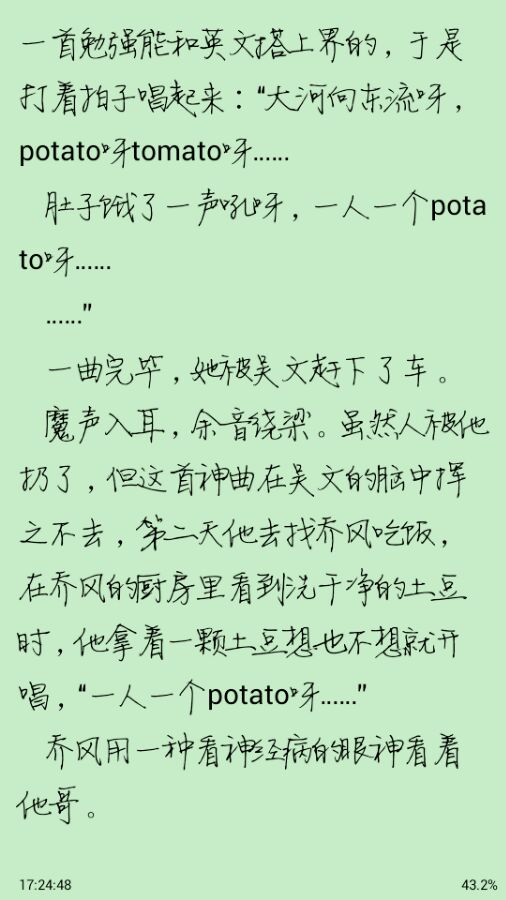 一首勉强能和英文搭上界的，于是
打着拍子唱起来：“大河向东流呀，
potato呀tomato呀……
肚子饿了一声吼呀，一人一个pota
to呀……
……”
一曲完毕，她被吴文赶下了车。
魔声入耳，余音绕梁。虽然人被他
扔了，但这首神曲在吴文的脑中挥
之不去，第二天他去找乔风吃饭，
在乔风的厨房里看到洗干净的土豆
时，他拿着一颗土豆想也不想就开
唱，“一人一个potato呀……”
乔风用一种看神经病的眼神看着
他哥。
17:24:48 43.2%